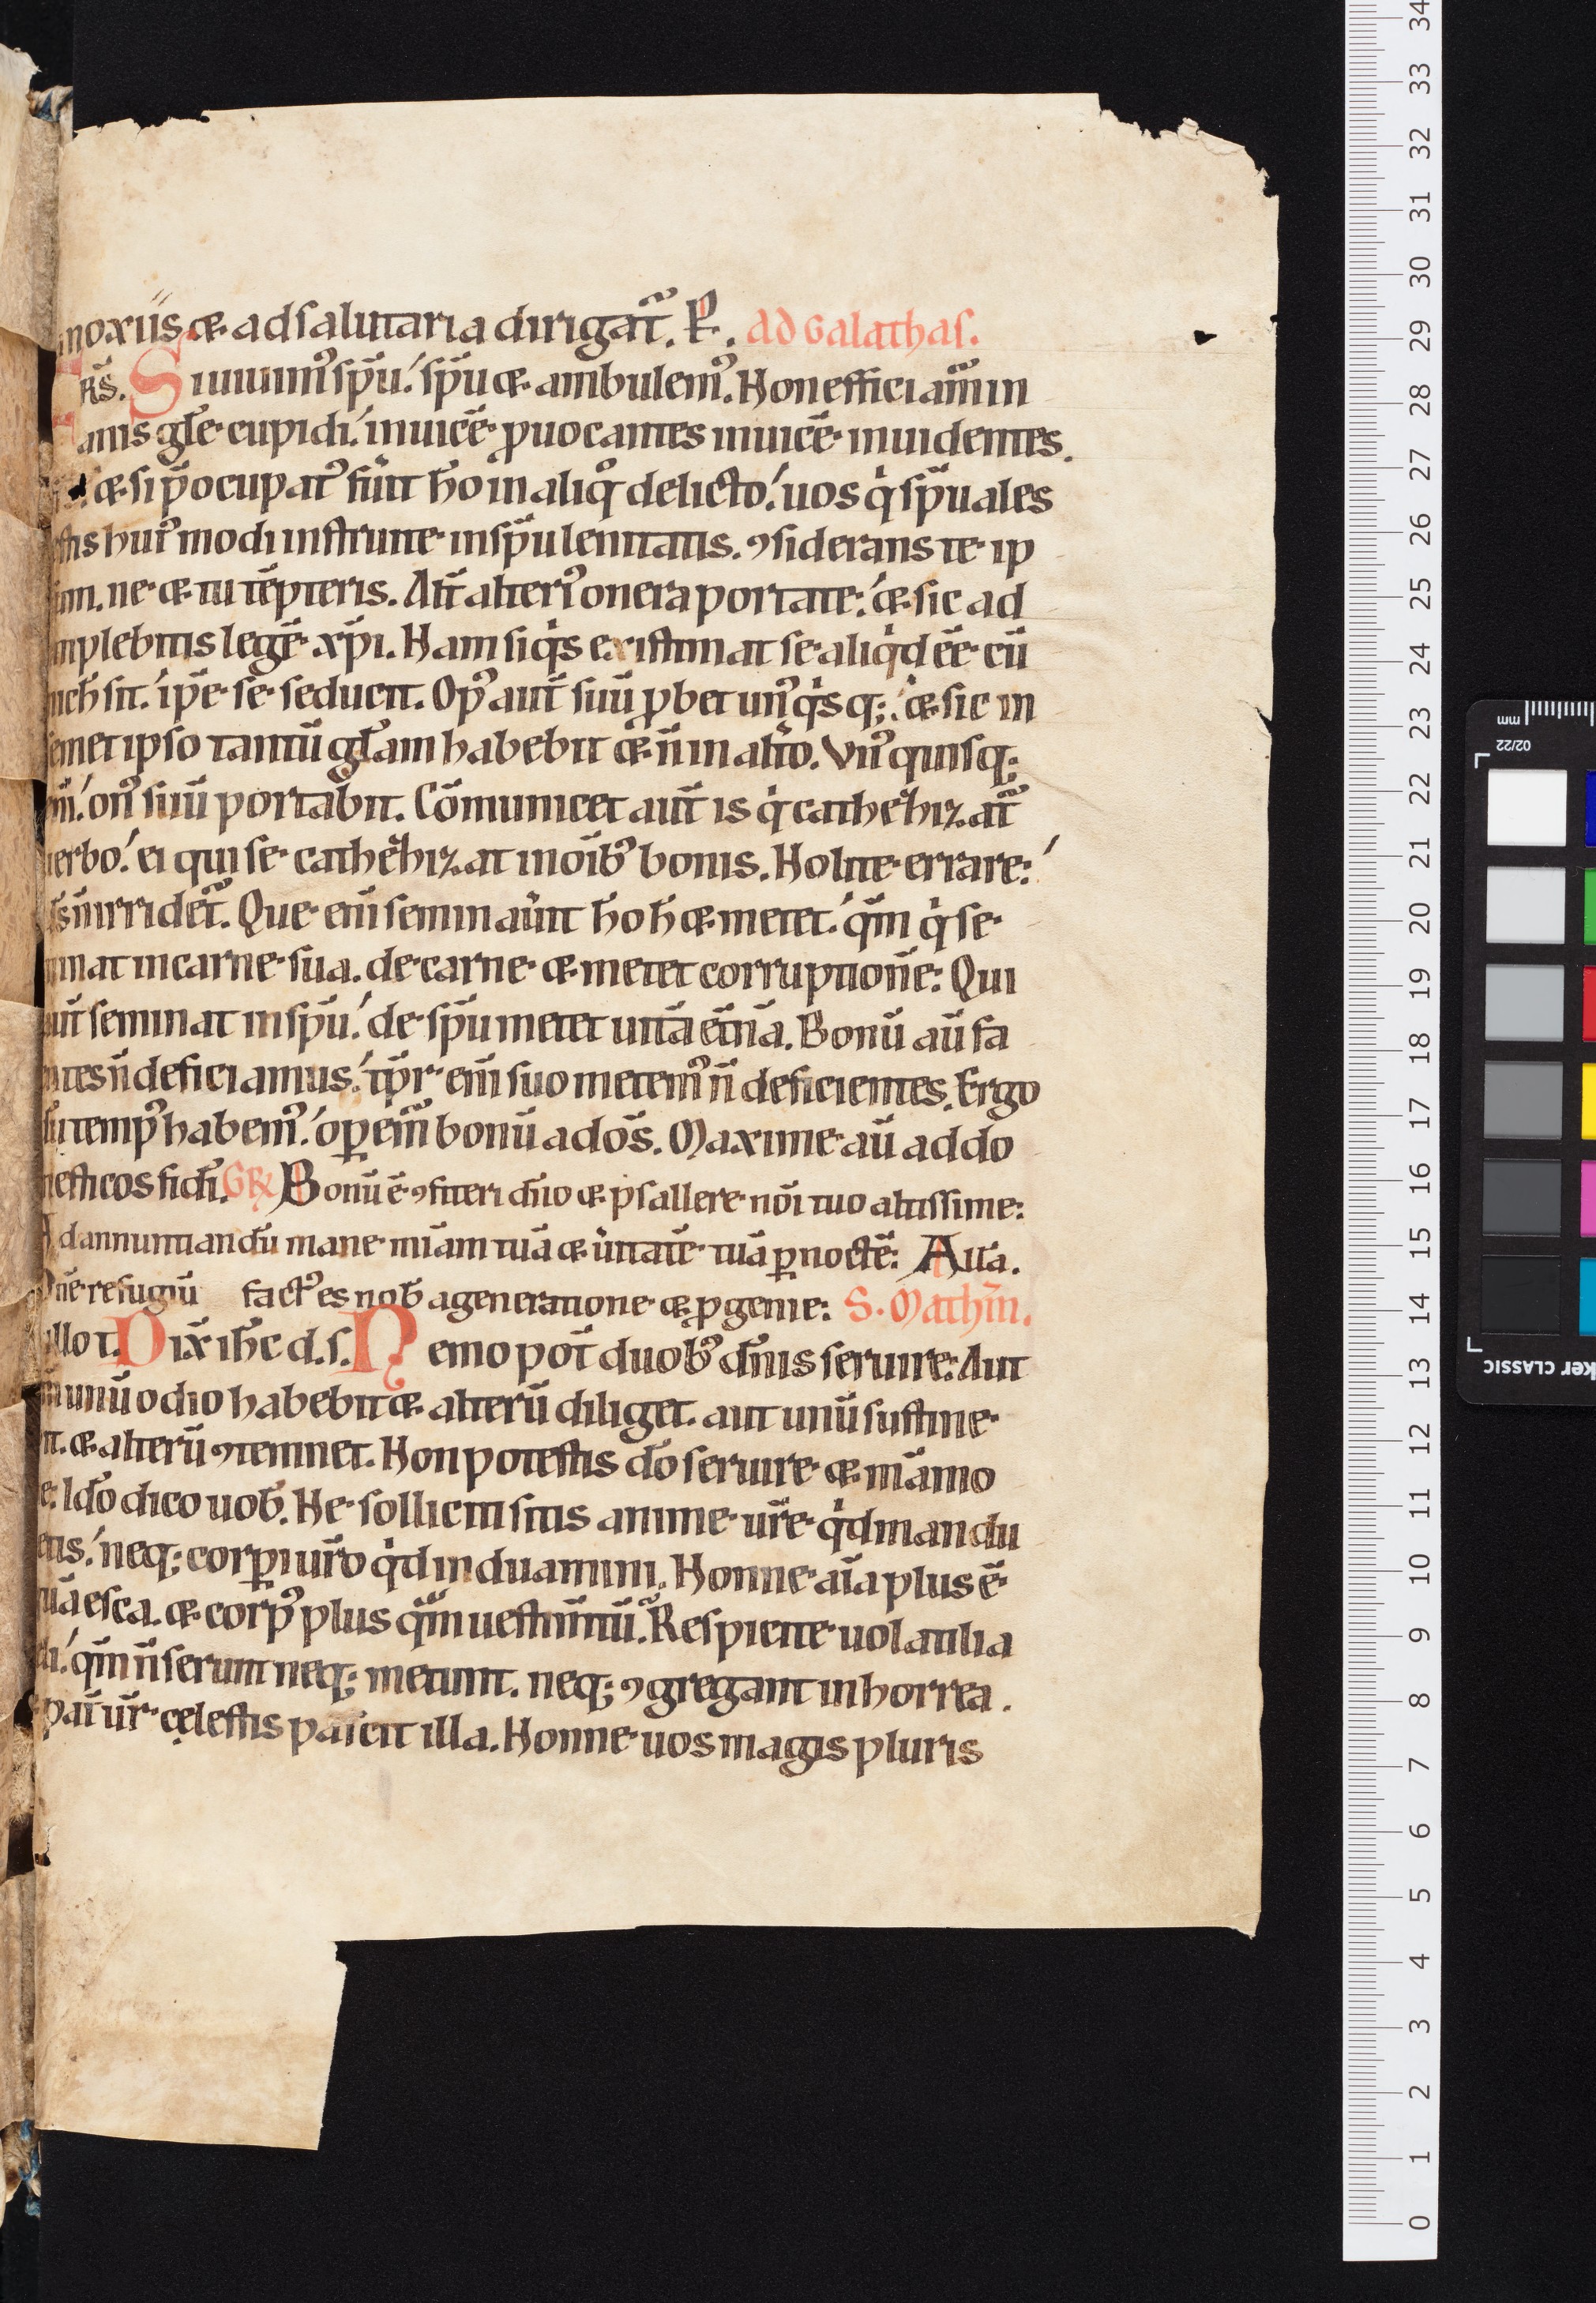 noxiis & ad salutaria dirigat̄. P. ad Galathas.
R̄s. Siuiuim᾽ sp̄u. sp̄u & ambulem᾽. Non efficiam̄ in
anis gl̄e cupidi. inuicē ꝓuocantes inuicē inuidentes.
& si p̄ocupat᾽ fu̾it h̄o in aliqͦ delicto. uos qͥ sp̄uales
estis hui᾽modi instruite in sp̄u lenitatis. ꝯsiderans te ip
sum. ne & tu tēpteris. Alt̄ alteri᾽ onera portate. & sic ad
implebitis legē xp̄i. Nam siqͥs existimat se aliqͥd ēē cū
nich̄ sit. ip̄e se seducit. Op᾽ aut̄ suū ꝓbet un᾽qͥsq; & sic in
semet ipso tantū gl̄am habebit & n̄ in altͦo. Vn᾽quisq;
eni. on᾽ suū portabit. Cōmunicet aut̄ is qͥ cathehizat̄
uerbo. ei qui se cathehizat in oīb᾽ bonis. Nolite errare.
d̄s n̄ irridet̄. Que eni seminau̾it h̄o h̄ & metet. qm̄ qͥ se
minat in carne sua. de carne & metet corruptionē. Qui
aut̄ seminat in sp̄u. de sp̄u metet uitā et̄nā. Bonū aū fa
cientes n̄ deficiamus. tp̄r eni suo metem᾽ n̄ deficientes. Ergo
dū temp᾽ habem᾽. oꝑem̄ bonū ad oēs. Maxime aū ad do
mesticos fidei. GR Bonū ē ꝯfiteri dn̄o & psallere nōi tuo altissime:
Ad annuntiandū mane miam tuā & u̾itatē tuā ꝑ noctē: Alla.
Dn̄e refugiū fact᾽ es nob̄ a generatione & ꝓgenie: S. Mathm̄.
illo t. Dix̄ ih̄c d. s. Nemo pot̄ duob᾽ dn̄is seruire. Aut
eni unū odio habebit & alterū diliget. aut unū sustine
bit. & alterū ꝯtemnet. Non potestis dō seruire & māmo
ne. Idō dico uob̄. Ne solliciti sitis anime ur̄e qͥd mandu
cetis. neq; corꝑi ur̄o qͥd induamini. Nonne aīa plus ē
quā esca. & corp᾽ plus qͣm uestim̄tū. Respicite uolatilia
celi. qm̄ n̄ serunt neq; metunt. neq; ꝯgregant in horrea.
& pat̄ ur̄ cęlestis pascit illa. Nonne uos magis pluris